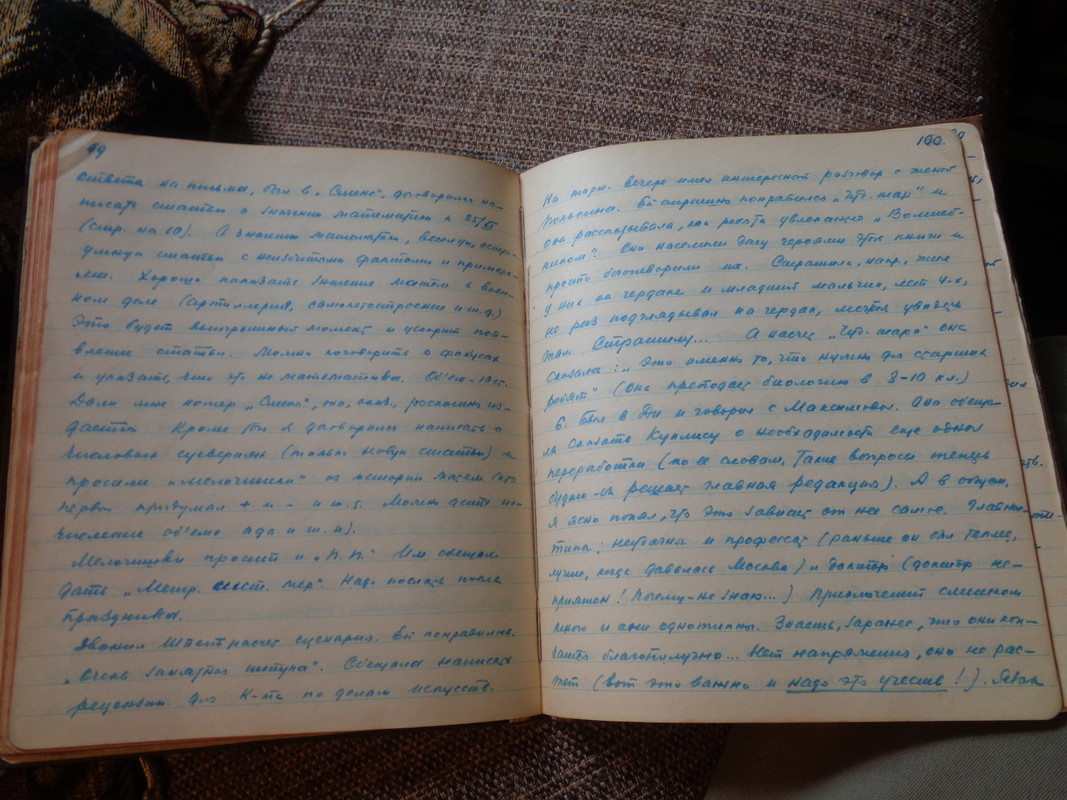 99
ответа на письма, был в „Смене", договорился на-
писать статью о значении математики к 25/XI
(стр. на 10). О значении математики, веселую, остро-
умную статью с неизбитыми фактами и примера-
ми. Хорошо показать значение матем. в воен-
ном деле (артиллерия, самолетостроение и т.д.)
Это будет выигрышный момент и ускорит поя-
вление статьи. Можно поговорить о фокусах
и указать, что это не математика. Об'ем - 10 ст.
Дали мне номер „Смены", она, оказ., роскошно из-
дается. Кроме того я договорился написать о
числовых суевериях (только новую статью) и
просили „мелочишки" из истории матем. (кто
первый придумал + и - и т.д. Можно дать ис-
числение об'ема ада и т.п.).
Мелочишки просит и „П.П." Им обещал
дать „Метр. сист. мер". Надо послать после
праздников.
Звонил насчет сценария. Ей понравилась.
„Очень занятная штука". Обещала написать
рецензию для К-та по делам искусств.
100
На торж. вечере имел интересной разговор с женой
Волькина. Ей страшно понравился „Чуд. шар" и
она рассказывала, как ребята увлекались „Волшеб-
ником". Они населили дачу героями этой книги и
просто боготворили их. Страшила, напр., жил
у них на чердаке и младший мальчик, лет 4-х,
не раз подглядывал на чердак, мечтая увидеть
там Страшилу... А насчет „Чуд. шара" она
сказала: „Это именно то, что нужно для старших
ребят" (Она преподает биологию в 8-10 кл.)
6. Был в ДИ и говорил с Максимовой. Она обеща-
ла сказать Куклису о необходимости еще одной
переработки (по ее словам, такие вопросы теперь
будто-бы решает главная редакция). А в общем,
я ясно понял, что это зависит от нее самой. Главное
типы; неудачны и профессор (раньше он был теплее,
лучше, когда давалась Москва) и доктор (доктор не-
приятен! Почему - не знаю...) Приключений слишком
много и они однотипны. Знаешь заранее, что они кон-
чатся благополучно... Нет напряжения, оно не рас-
тет (вот это важно и надо это учесть!).